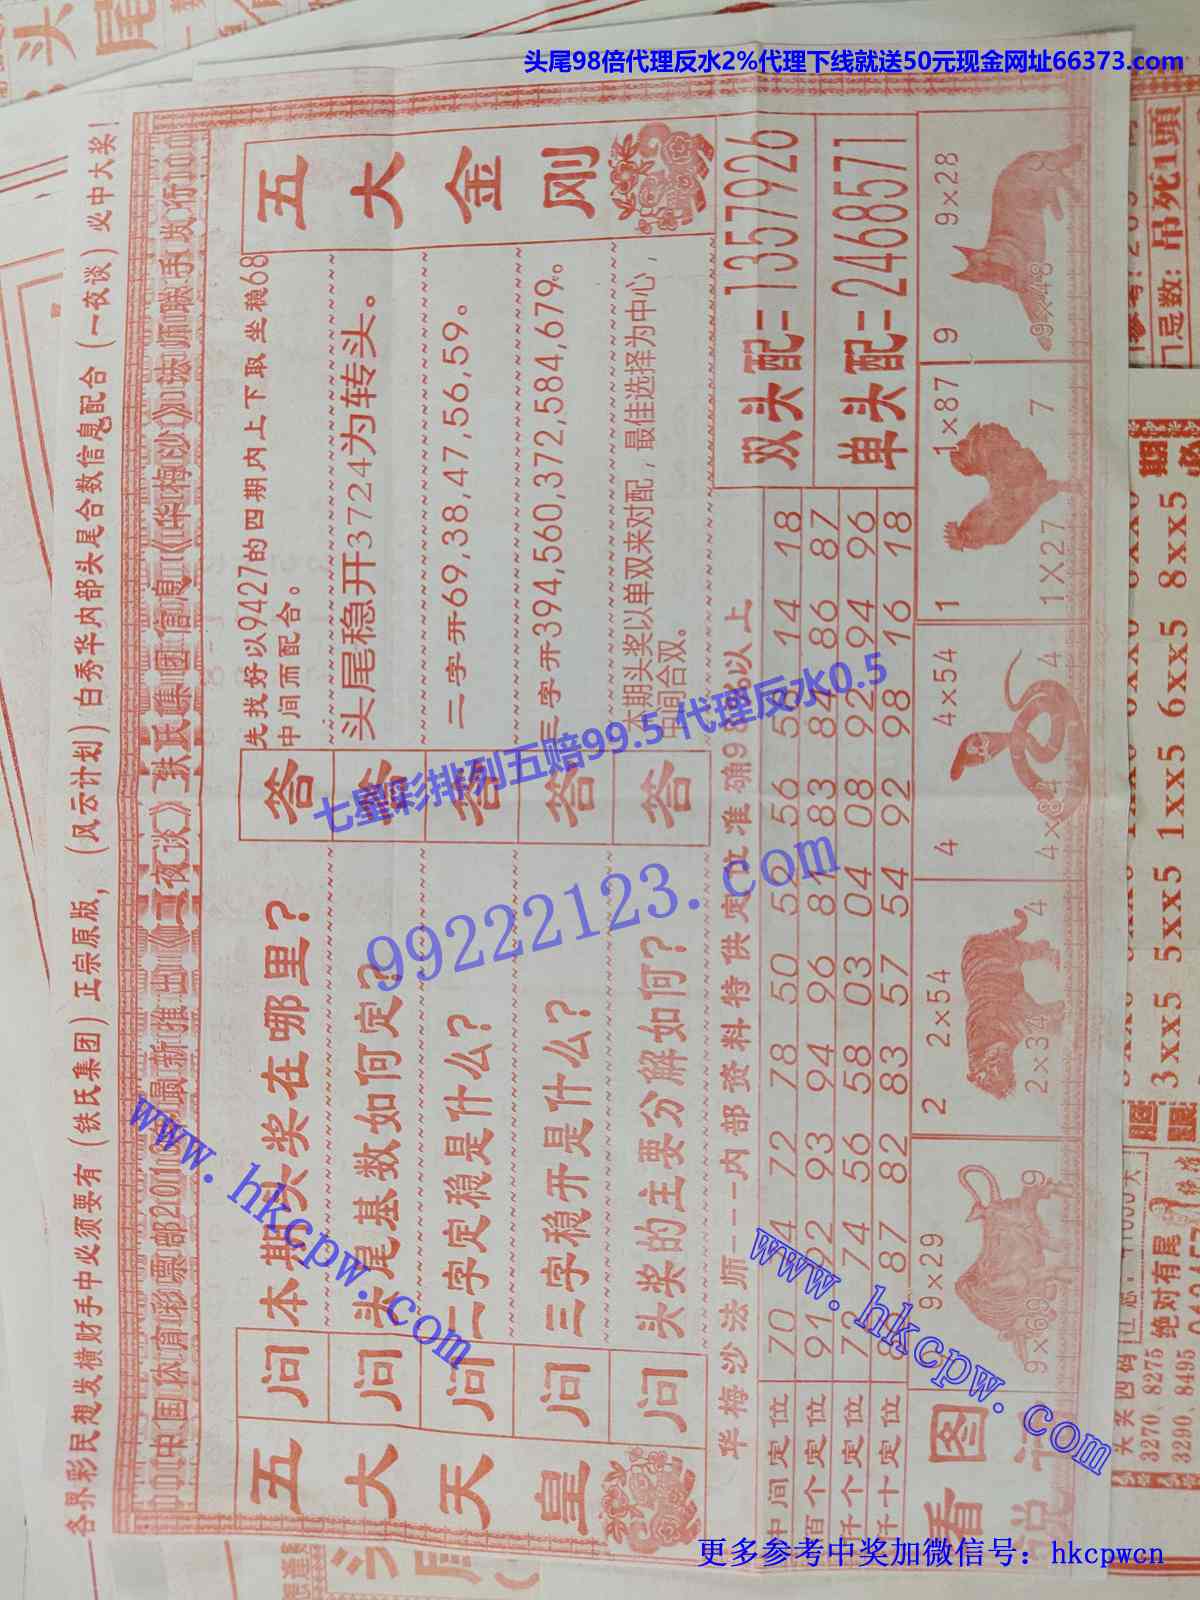 头尾98倍代理反水2%代理下线就送50元现金网址66373.com
各界彩民想发横财手中必须要有（铁氏集团）正宗原版，（风云计划）白秀华内部头尾合数信息配合（一夜谈）必中大奖！
五大天皇
五大金刚
问 本期头奖在哪里？
答 先找好以9427的四期内上下取坐稳68
中间而配合。
问 头尾基数如何定？
答 头尾稳开3724为转头。
问 二字定稳是什么？
答 二字开69,38,47,56,59。
问 三字稳开是什么？
答 三字开394,560,372,584,679。
问 头奖的主要分解如何？
答 本期头奖以单双来对配，最佳选择为中心，
中间合双。
华梅沙法师---内部资料特供定位准确98%以上
双头配=1357926
单头配=2468571
中间定位 70 74 72 78 50 52 56 58 14 18
百个定位 91 92 93 94 96 81 83 84 86 87
千个定位 72 74 56 58 03 04 08 92 94 96
千十定位 87 82 83 57 54 92 98 16 18
看图说话
9×29
9×69
9
2
2×54
2×34
4
4
4×54
4×84
4
1
1×87
1×27
7
9
9×28
9×48
8
七星彩排列五赔99.5 代理反水0.5
99222123.com
www.hkcpw.com
www.hkcpw.com
3xx5 5xx5 1xx5 6xx5 8xx5
3270、8275 绝对有尾
吊死1頭
更多参考中奖加微信号：hkcpwcn